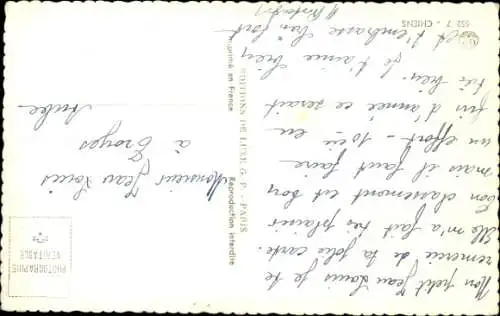 Mon petit Jean Louis je te
remercie de ta jolie carte.
Elle m'a fait très plaisir
Ton classement est bon
mais il faut faire
un effort - 10ème en
fin d'année ce serait
très bien.
Je t'aime bien
et t'embrasse bien fort
552 7 - CHIENS
EDITIONS DE LUXE G. P. - PARIS
Imprimé en France
Reproduction interdite
Monsieur Jean Louis
à Troyes
Aube
PHOTOGRAPHIE
VERITABLE